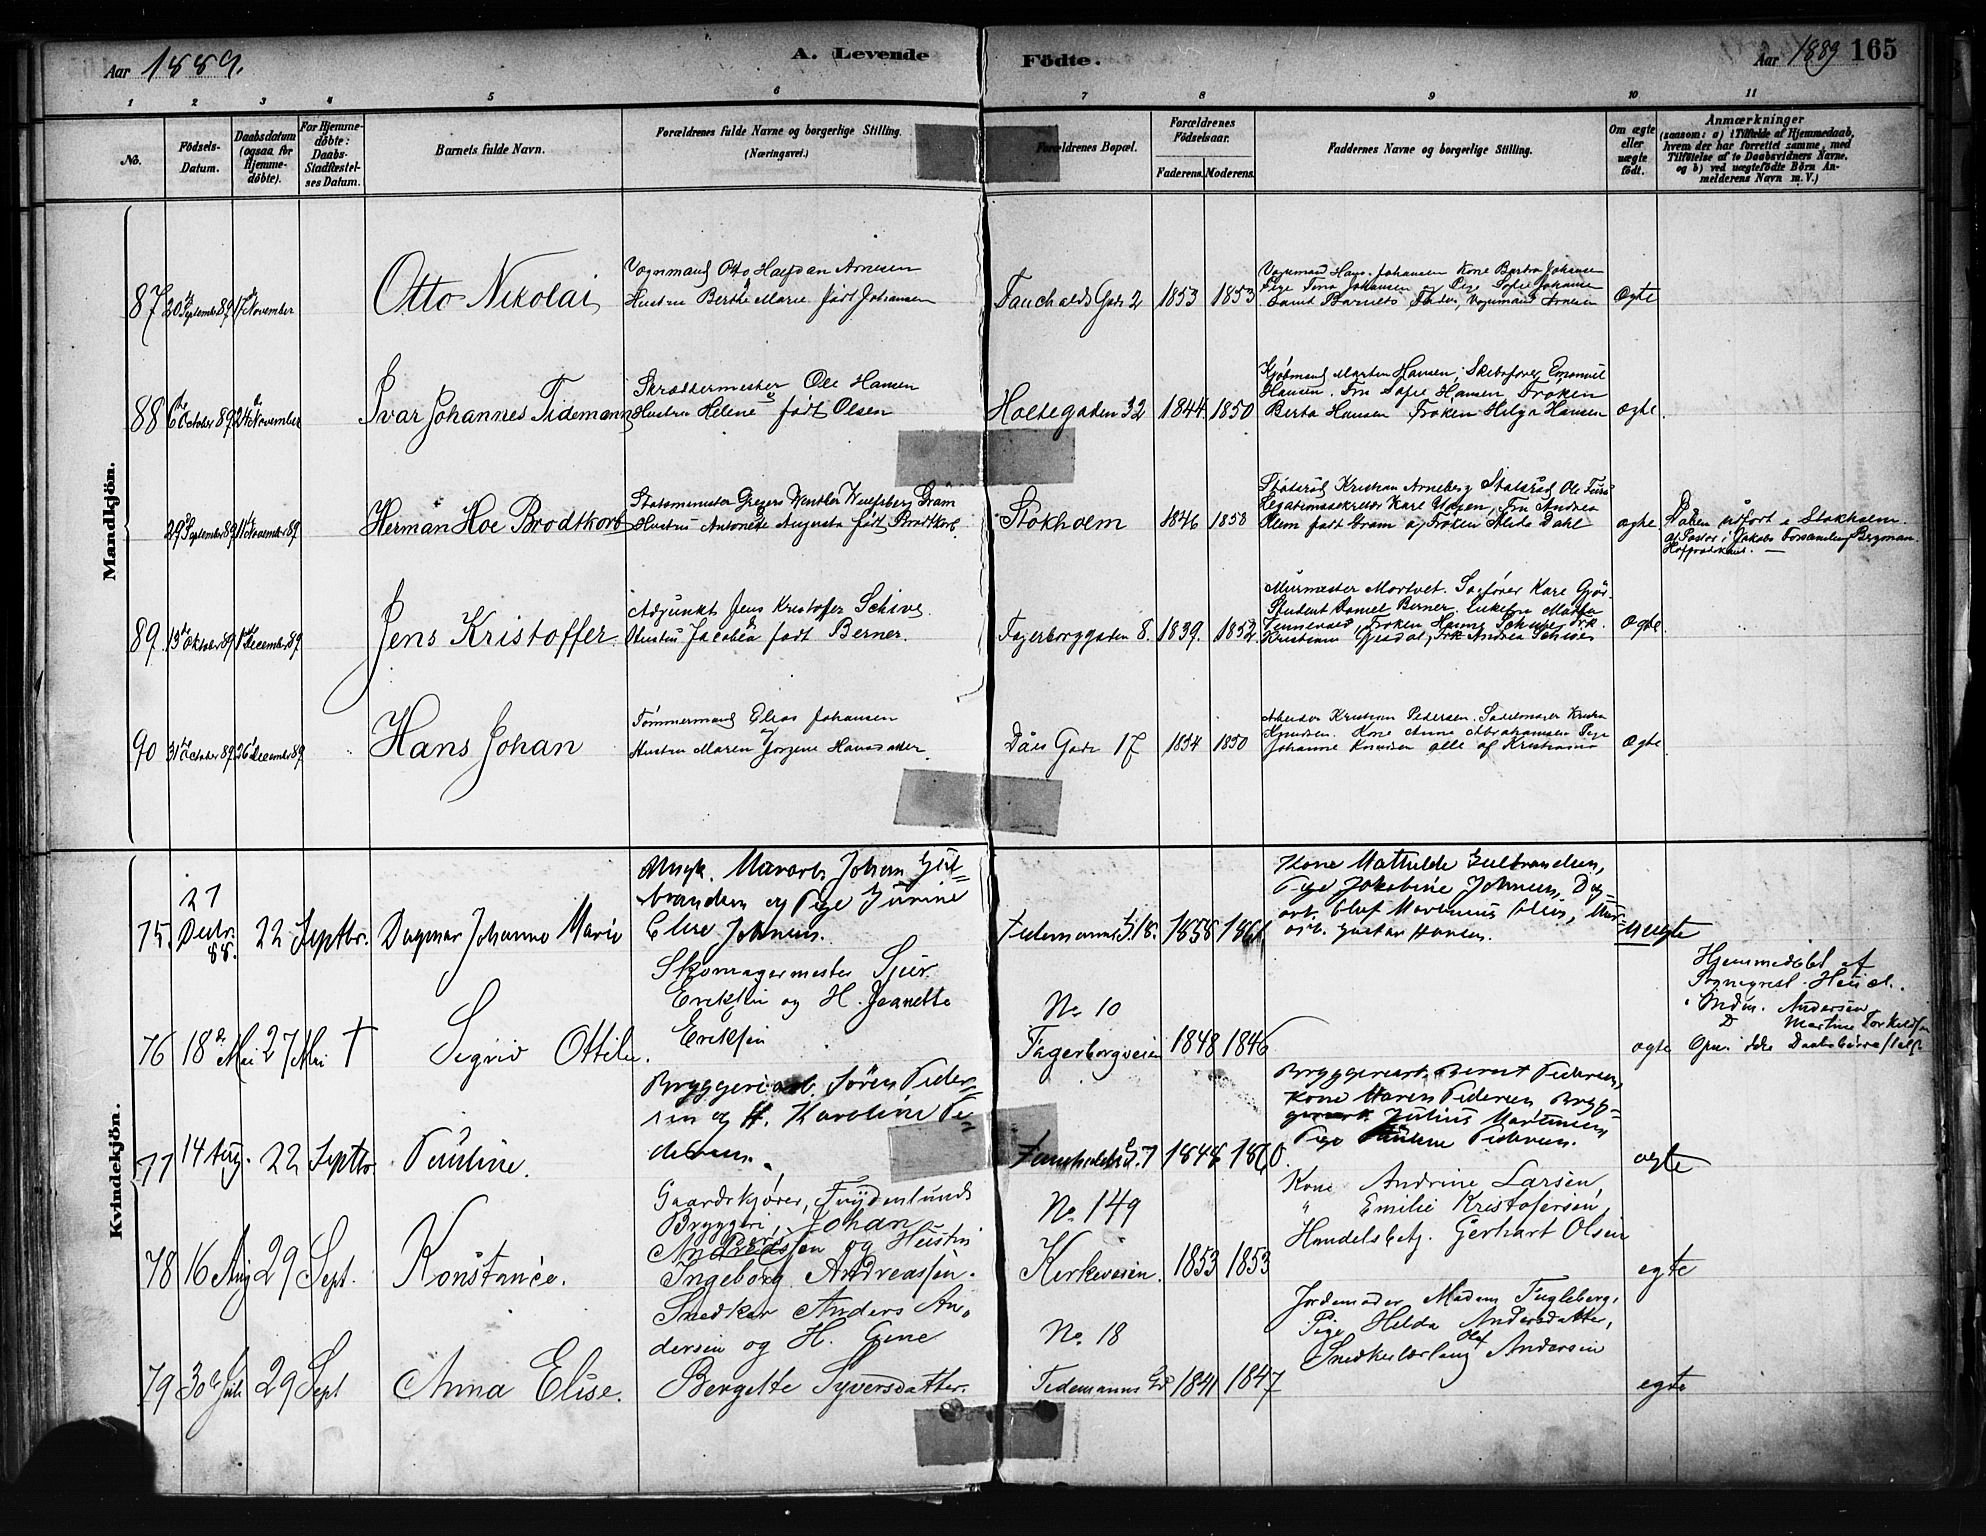 Aar 1889.
A. Levende
Fødte.
Aar 1889 165
1 2 3 4 5 6 7 8 9 10 11
No.
Fødsels-
Datum.
Daabsdatum
(ogsaa for
Hjemme-
døbte).
For Hjemme-
døbte:
Daabs-
Stadfæstel-
ses Datum.
Barnets fulde Navn.
Forældrenes fulde Navne og borgerlige Stilling.
(Næringsvei.)
Forældrenes Bopæl.
Forældrenes
Fødselsaar.
Faderens. Moderens.
Faddernes Navne og borgerlige Stilling.
Om ægte
eller
uægte
født.
Anmærkninger
(saasom: a) i Tilfælde af Hjemmedaab,
hvem der har forrettet samme, med
Tilføielse af to Daabsvidners Navne,
og b) ved uægtefødte Børn An-
melderens Navn m. V.)
Mandkjön.
87 20 September 89 17 November
Otto Nikolai
Vognmand Otto Halfdan Arnesen
Hustru Berthe Marie født Johansen
Fauchalds Gade 2 1853 1853
Vognmand Hans Johansen Kone Berta Johansen
Pige Tina Johansen og Pige Sofie Johansen
samt Barnets Fader, Vognmand Arnesen
Ægte
88 6 October 89 24 November
Ivar Johannes Tidemann
Skræddermester Ole Hansen
Hustru Helene født Olsen
Holtegaden 32 1844 1850
Kjøbmand Marten Hansen. Emanuel
Hansen. Fru Sofie Hansen Frøken
Berta Hansen Frøken Helga Hansen
ægte
29 September 89 11 November 89
Herman Hoe Brodtkorb
Statsminister Gregers Winther Wulfsberg Gram
Hustru Antonette Augusta født Brodtkorb.
Stokholm 1846 1850
Statsraad Kristian Arneberg Statsraad Ole
Legationssekretær Fru Andrea
født Gram og Frøken Dahl
ægte
Daaben udført i Stokholm
af Pastor i Jakobs Forsamling Bergman.
Hofprædikant.
89. 13 Oktober 89 1 December 89
Jens Kristoffer
Adjunkt Jens Kristoffer Schive.
Hustru Jacobea født Berner.
Fagerborggaden 8. 1839. 1852.
Murmester Mortvet. Sagfører
Student Daniel Berner. Enkefru
Frøken Hanna Schive, Frk.
Frk Andrea Schive
Ægte
90 31 October 89 26 December 89
Hans Johan
Tømmermand Elias Johansen
Hustru Maren Jørgine Hansdatter
Daas Gade 17 1854 1850
Arbeider Kristian Pedersen. Sadelmager
Knudsen. Kone Anne Abrahamsen Pige
Johanne Knudsen alle af Kristiania
Ægte
Kvindekjön.
75 27 Decbr. 88. 22 Septbr.
Dagmar Johanne Marie
Murarb. Johan Gul-
brandsen og Pige Jurine
Elise Johnsen.
Tidemanns G. 18. 1858 1861
Kone Mathilde Gulbrandsen,
Pige Jakobine Johnsen, Dag-
arb. Olaf Martinius Olsen, Mur-
arb. Gustav Hansen.
Uægte
76 18 Mai 27 Mai †
Sigrid Ottilie.
Skomagermester Sjur
Eriksen og H. Jeanette
Eriksen
No 10
Fagerborgveien 1848 1846
ægte
Hjemmedøbt af
Sogneprest
Andersen
Martine Torkildsen
77 14 Aug. 22 Septbr
Pauline.
Bryggeriarb. Søren Peder-
sen og H. Karoline Pe-
dersen.
Fauchalds G. 7 1848 1860.
Bryggeriarb. Bernt Pedersen,
Kone Maren Pedersen Bryg-
geriarb Julius Martinsen
Pige Pauline Pedersen.
ægte
78 16 Aug 29 Sept.
Konstance.
Gaardskjører, Frydenlunds
Bryggeri, Johan
Andreassen og Hustru
Ingeborg Andreassen.
No. 149
Kirkeveien. 1853 1853
Kone Andrine Larsen
" Emilie Kristofersen,
Handelsbetj. Gerhart Olsen
egte
79 30 Juli 29 Sept
Anna Elise.
Snedker Anders An-
dersen og H. Gine
Bergitte Syversdatter.
No. 18
Tidemanns Gd 1841 1847
Jordemoder Madam Fugleberg,
Pige Hilda Andersdatter,
Snedkerlærling Olaf Andersen
egte